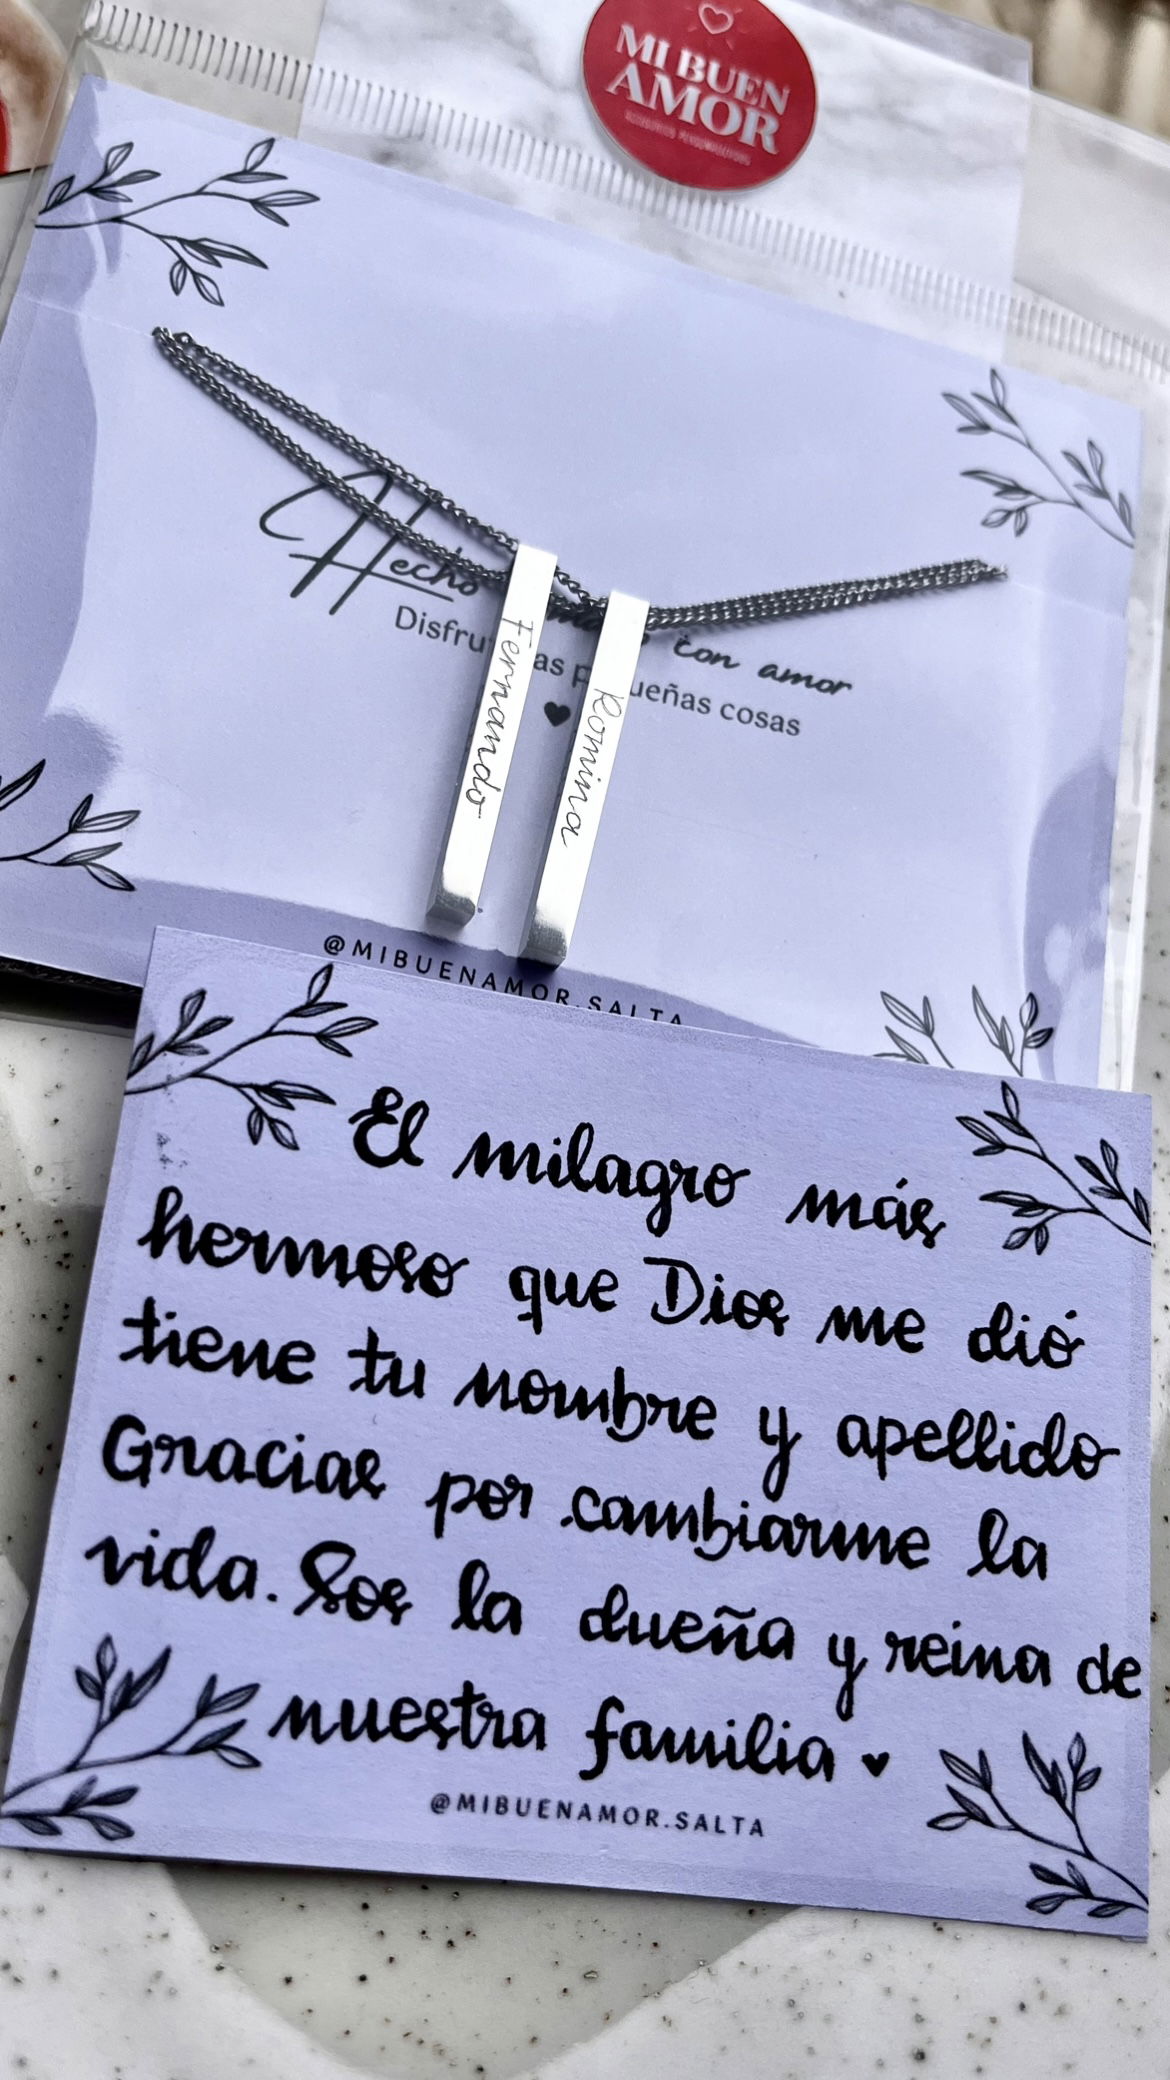 MI BUEN
AMOR
Hecho con amor
Disfru as p ueñas cosas
Fernando
Romina
@MIBUENAMOR.SALTA
El milagro más
hermoso que Dios me dió
tiene tu nombre y apellido
Gracias por cambiarme la
vida. Sos la dueña y reina de
nuestra familia
@MIBUENAMOR.SALTA